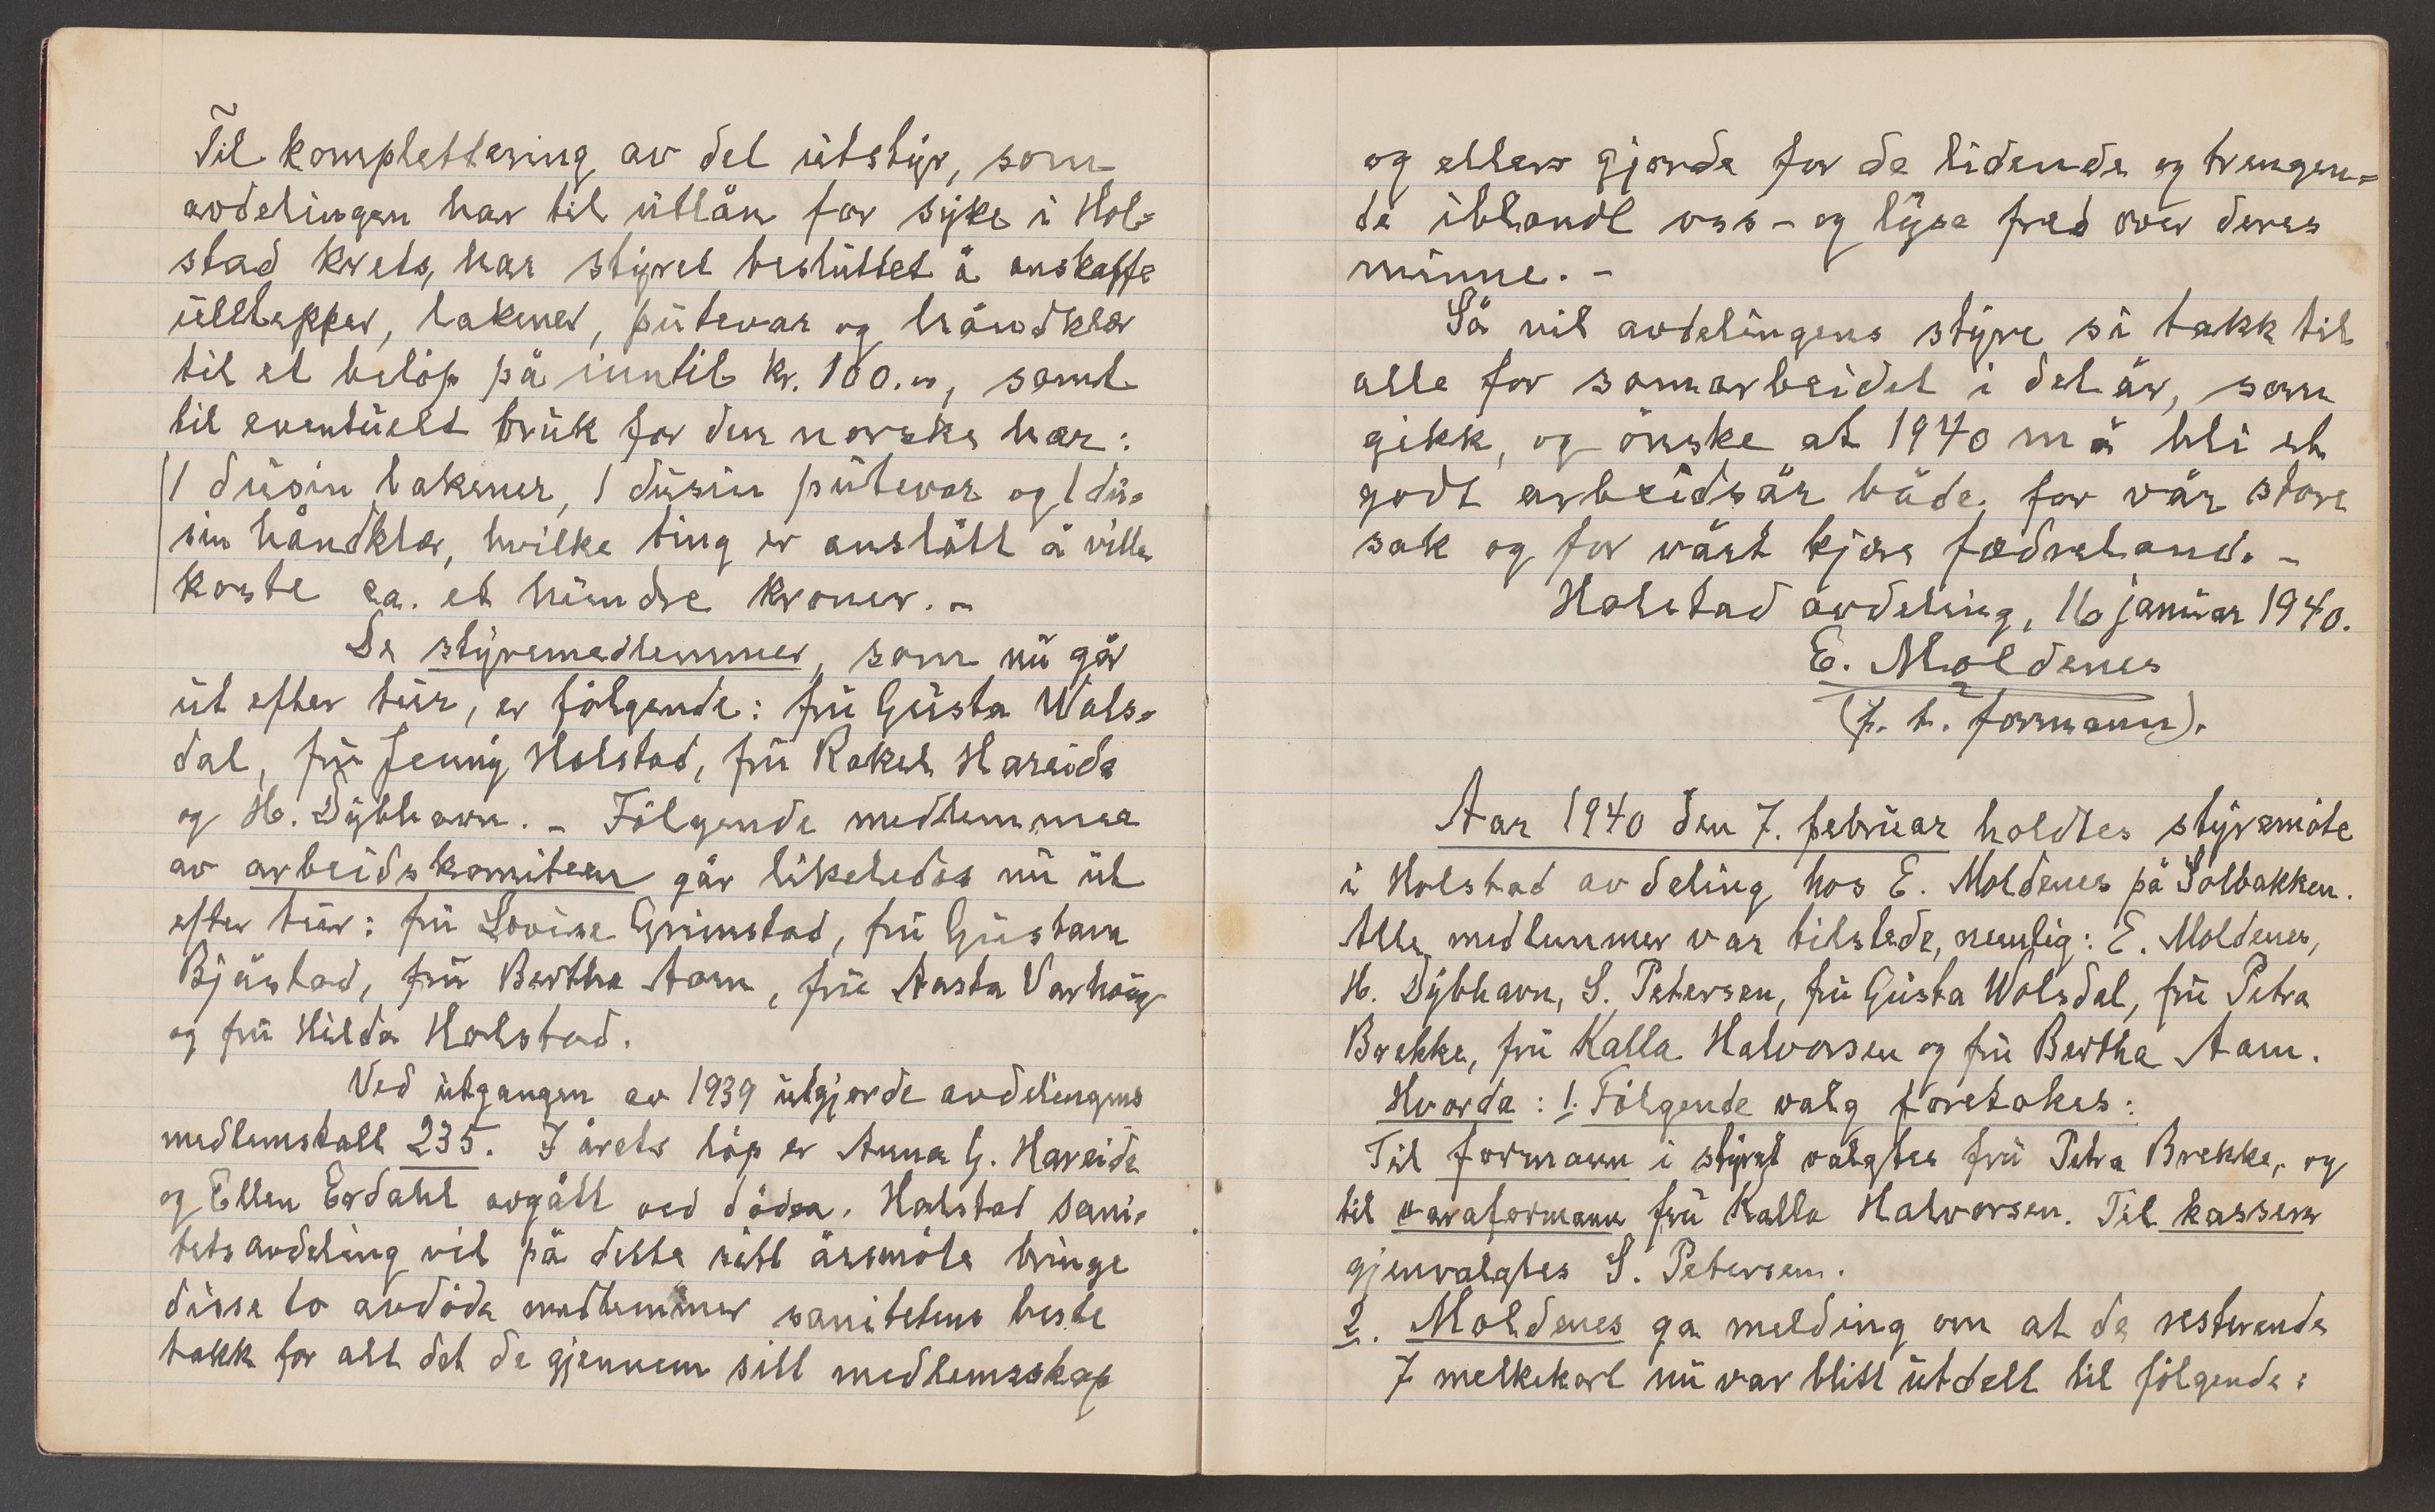 Til komplettering av det utstyr, som
avdelingen har til utlån for syke i Hol=
stad krets, har styret besluttet å anskaffe
ulltepper, lakener, putevar og håndklær
til et beløp på inntil kr. 100.-, samt
til eventuelt bruk for den norske hær:
1 dusin lakener, 1 dusin putevar og 1 du=
sin håndklær, hvilke ting er anslått å ville
koste ca. et hundre kroner. -
De styremedlemmer, som nu går
ut efter tur, er følgende: fru Gusta Wals=
dal, fru Jenny Holstad, fru Rakel Hareide
og H. Dybhavn. - Følgende medlemmer
av arbeidskomiteen går likeledes nu ut
efter tur: fru Lovise Grimstad, fru Gustava
Bjåstad, fru Bertha Aam, fru Aasta Varhaug
og fru Hilda Holstad.
Ved utgangen av 1939 utgjorde avdelingens
medlemstall 235. I årets løp er Anna G. Hareide
og Ellen Erdahl avgått ved døden. Holstad sani=
tetsavdeling vil på dette sitt årsmøte bringe
disse to avdøde medlemmer sanitetens beste
takk for alt det de gjennem sitt medlemsskap
og ellers gjorde for de lidende og trengen=
de iblandt oss - og lyse fred over deres
minne. -
Så vil avdelingens styre si takk til
alle for samarbeidet i det år, som
gikk, og ønske at 1940 må bli et
godt arbeidsår både for vår store
sak og for vårt kjære fædreland. -
Holstad avdeling, 16 januar 1940.
E. Moldenes
(p. t. formann).
Aar 1940 den 7. februar holdtes styremøte
i Holstad avdeling hos E. Moldenes på Solbakken.
Alle medlemmer var tilstede, nemlig: E. Moldenes,
H. Dybhavn, S. Petersen, fru Gusta Walsdal, fru Petra
Brekke, fru Kalla Halvorsen og fru Bertha Aam.
Hvorda: 1. Følgende valg foretokes:
Til formann i styret valgtes fru Petra Brekke, og
til varaformann fru Kalla Halvorsen. Til kasserer
gjenvalgtes S. Petersen.
2. Moldenes ga melding om at de resterende
7 melkekort nu var blitt utdelt til følgende: